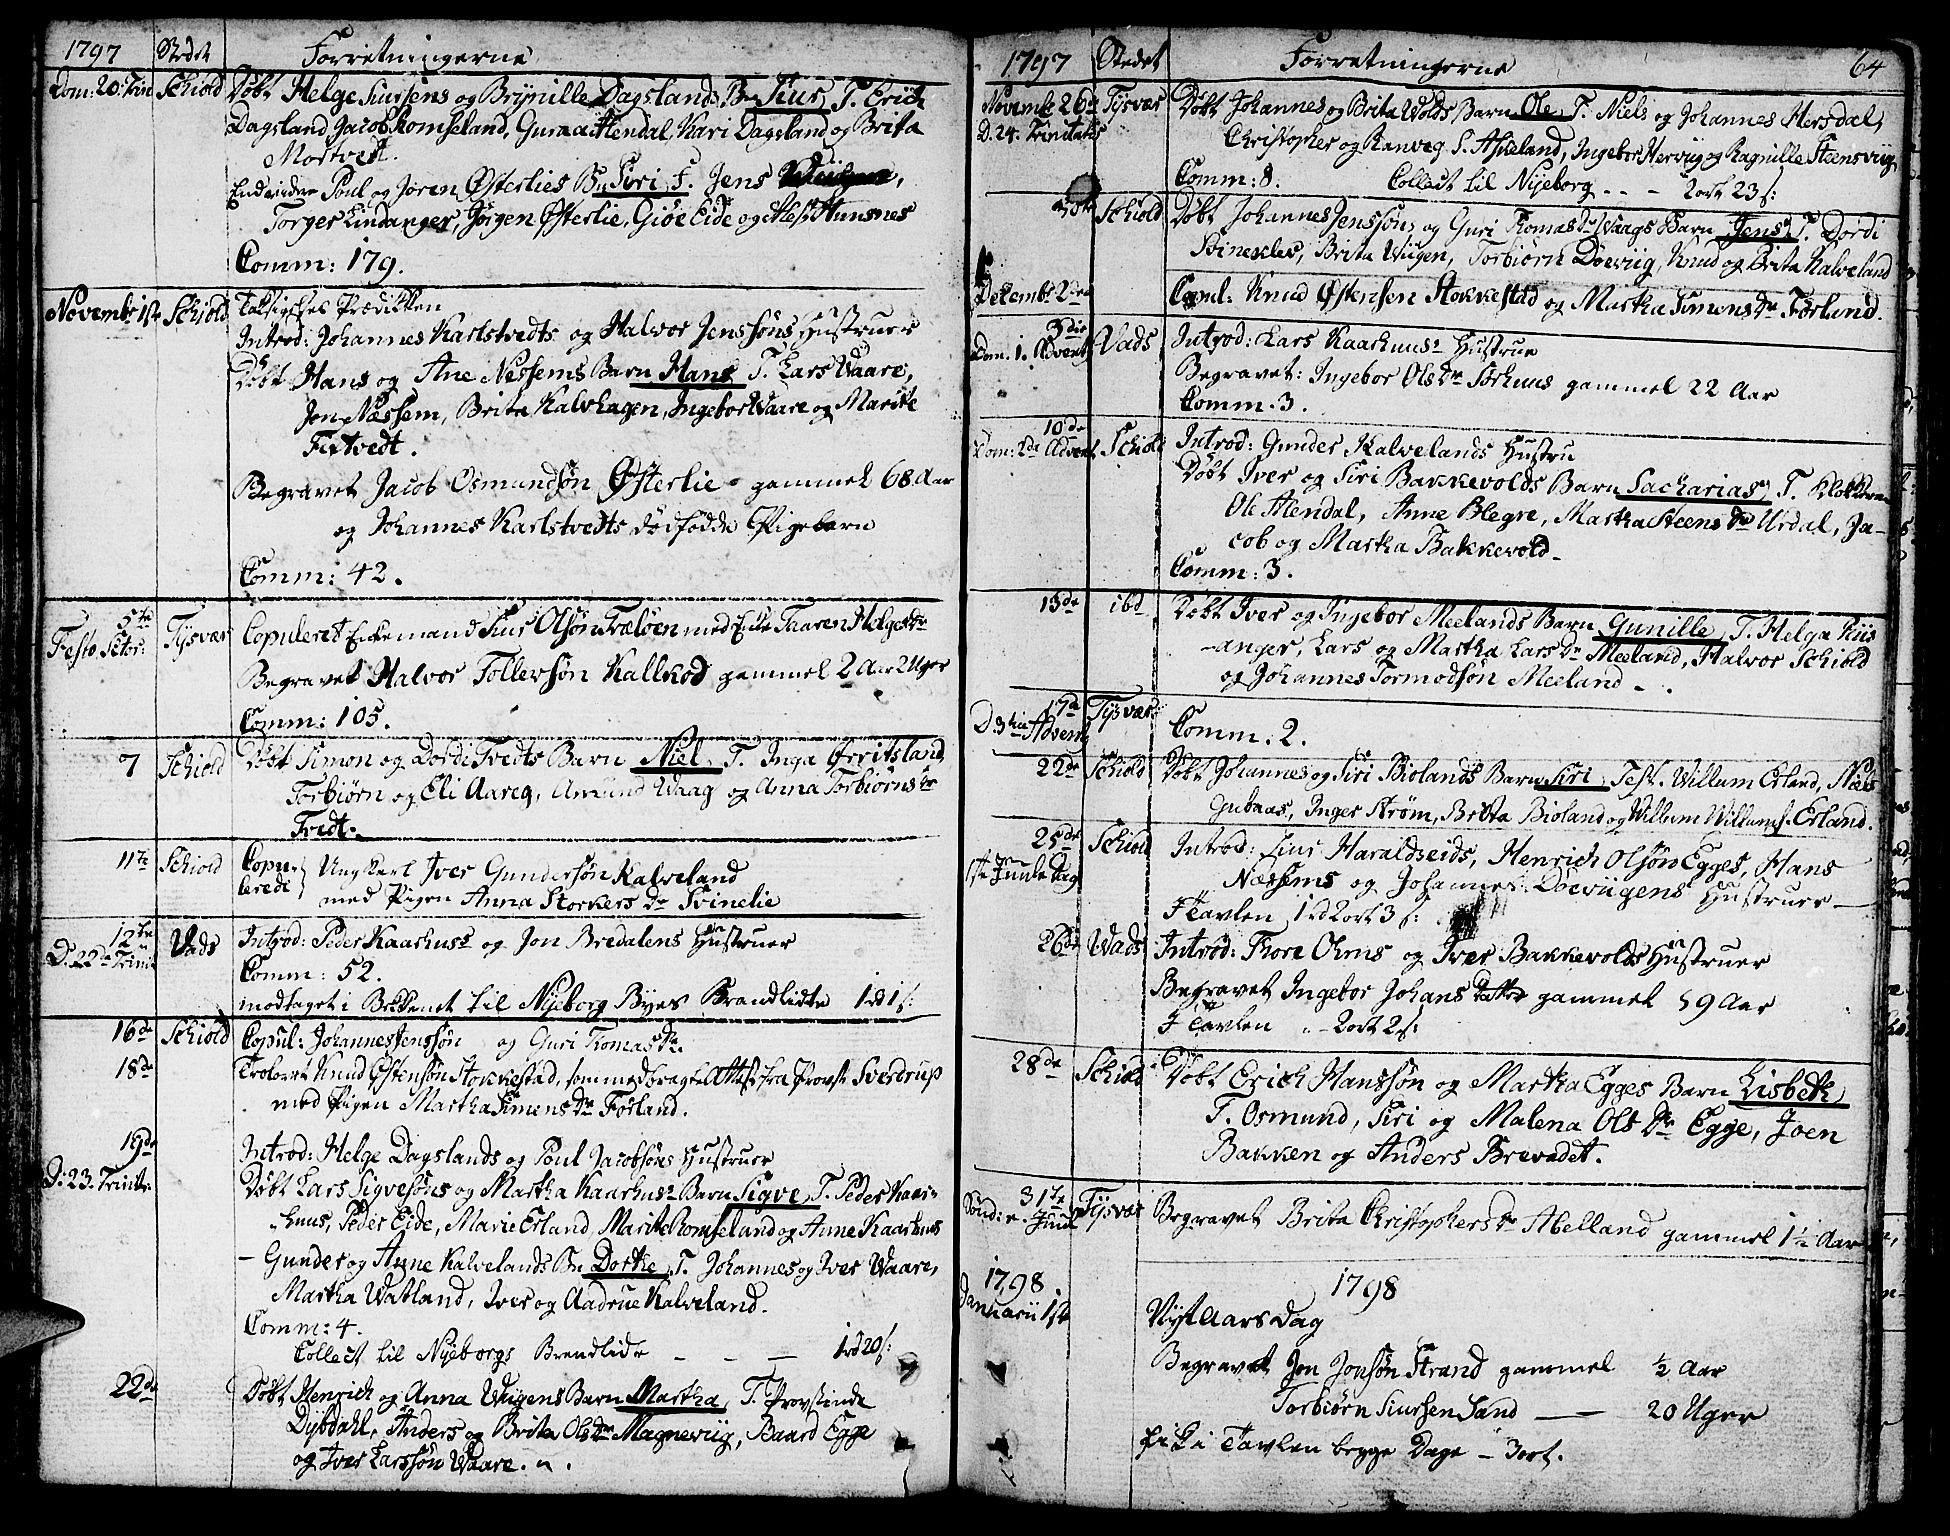 1797 Stedet Forretningerne
Dom: 20: Trin Schiold Døbt Helge Siursens og Brynille Dagslands Bn Siur, T. Erich
Dagsland Jacob Romseland, Gunna Hendal, Kari Dagsland og Brita
Mortvedt.
Endvidre Poul og Joren Østerlies Bn Siri, F. Jens
Torger Lindanger, Jørgen Østerlie, Giøe Eide og Hunsnes
Comm: 179.
Novembr 1ste Schiold Taksigelses Prædikken
Introd: Johannes Karlstvedts og Halvor Jenssøns Hustruer
Døbt Hans og Ane Nessems Barn Hans T. Lars Vaare,
Jon Næssem, Brita Kalvhagen, Ingebor Waare og Marite
Fixtvedt.
Begravet Jacob Osmundsøn Østerlie - gammel 68 Aar
og Johannes Karlstvedts dødfødde Pigebarn
Comm: 42.
5te
Festo Sctor: Tysvær Copuleret Enkemand Siur Olsøn Træløen med Enke Taaren Helgesdr
Begravet Halvor Tollevsøn Kallkod gammel 2 Aar 2 Uger
Comm: 105.
7 Schiold Døbt Simon og Dordi Tvedts Barn Niel, T. Inga Grritsland
Torbiørn og Eli Aareg, Amund Waag og Anna Torbiørns dr
Tvedt.
11te Schiold Copu-lerede Ungkarl Iver Gundersøn Kalveland
med Pigen Anna Storkers Dr Svinelie
12te
D. 22de Trinit Vads Introd: Peder Kaarhuss og Jon Bredalens Hustruer
Comm: 52.
modtaget i Bekkenet til Nyeborg Byes Brandlidte 1rd 1s:
16de Schiold Copul: Johannes Jenssøn og Guri Thomasdr.
18de Trolovet Knud Østensøn Stokkestad, som medbragte Attest fra Provst Sverdrup
med Pigen Martha Simens Dr Førland.
19de Introd: Helge Dagslands og Poul Jacobsøns Hustruer
D: 23. Trinit: Døbt Lars Sigvesøns og Martha Kaarhuss Barn Sigve, T. Peder Kaar-
huus, Peder Eide, Marie Erland, Marite Romseland og Anne Kaarhuus
- Gunder og Anne Kalvelands Bn Dorthe, T. Johannes og Iver Waare,
Martha Watland, Iver og Aadrue Kalveland.
Comm: 4.
Collect til Nyeborgs Brandlidte - - - 1rd 20s:
22de Døbt Henrich og Anna Wiigens Barn Martha, T. Provstinde
Dybdahl, Anders og Brita Olsdr Magneviig, Baard Egge
og Iver Larssøn Waare.
1797 Stedet Forretningerne 64
Novembr 26de Tysvær Døbt Johannes og Brita Wolds Barn Ole, T. Niels og Johannes Hersdal,
D. 24. Trinitatis Christopher og Ranveg S. Askeland, Ingebor Herviig og Ragnille Steensviig
Comm: 8. Collect til Nyeborg - - - 2ort 23s:
30te Schiold Døbt Johannes Jenssøns og Guri Thomas Dr Waags Barn Jens, T. Dordi
Stineklev, Brita Wiigen, Torbiørn Døeviig, Knud og Brita Kalveland
Decembr 2den Copul: Knud Østensen Stokkestad og Martha Simens Dr Førland.
3die
Dom. 1. Advent Vads Introd: Lars Kaarhuus Hustrue
Begravet: Ingebor Ols Dr Sørhuus gammel 22 Aar
Comm: 3.
10de
Dom: 2de Advent Schiold Introd: Gunder Kalvelands Hustru
Døbt Iver og Siri Bakkevolds Barn Sacharias, T. Klokkeren
Ole Hendal, Anne Blegre, Martha Steens Dr Urdal, Ja-
cob og Martha Bakkevold -
Comm: 3.
13de ibd Døbt Iver og Ingebor Meelands Barn Gunille, T. Helga Riis
anger, Lars og Martha Lars Dr Meeland, Halvor Schiold
og Johannes Tormodsøn Meeland - .
17de Tysvær
D. 3tia Advent Comm. 2.
22de Schiold Døbt Johannes og Siri Biolands Barn Siri, Test. Willum Erland, Niels
Gubaas, Inger Strøm, Brita Bioland og Willum Willums. Erland.
25de Schiold Introd: Siur Haraldseids, Henrich Olsøn Egges, Hans
1ste Juule Dag Næssems og Johannes Døeviigens Hustruer -
I Tavlen 1rd 2ort 3s:
26de Wads Introd: Thore Ohms og Iver Bakkevolds Hustruer
Begravet Ingebor Johans Datter gammel 59 Aar
I Tavlen - 2ort 2s:
28de Schiold Døbt Erich Hanssøn og Martha Egges Barn Lisbeth
T. Osmund, Siri og Malena Ols Dr Egge, Joen
Bakken og Anders Brevadet.
31te Tysvær
Sønd: e. Juul Begravet Brita Christophers Dr Abelland gammel 1½ Aar
1798. 1798
Januarii 1ste Nyt Aars Dag
Begravet Jon Jonsøn Strand gammel ½ Aar
Torbiørn Siursen Sand — 20 Uger
fik i Tavlen begge Dage - 3ort.